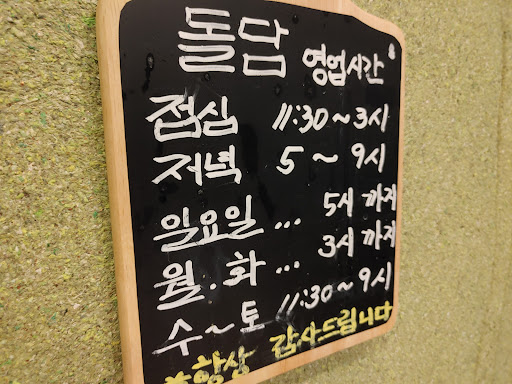 돌담 영업시간
점심 11:30~3시
저녁 5~9시
일요일... 5시 까지
월.화... 3시 까지
수~토 11:30~9시
항상 감사드립니다